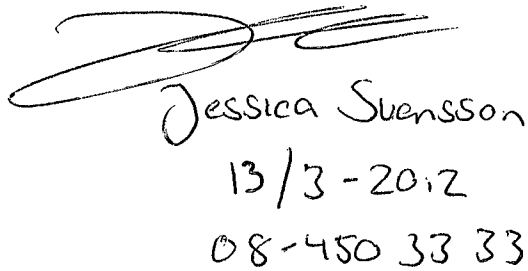 Jessica Svensson
13/3-2012
08-450 33 33